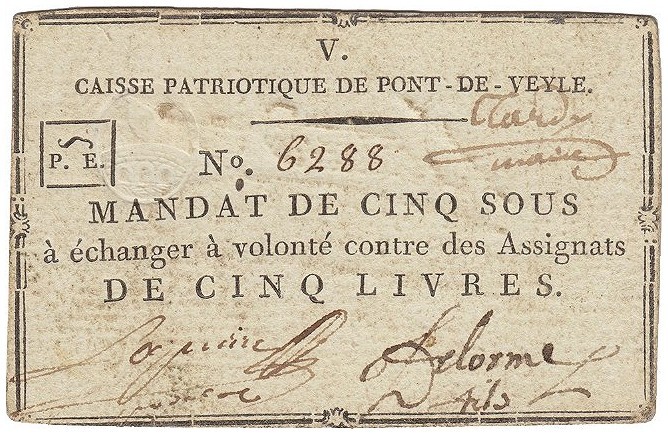 V.
CAISSE PATRIOTIQUE DE PONT-DE-VEYLE.
P. E.
Nº. 6288
MANDAT DE CINQ SOUS
à échanger à volonté contre des Assignats
DE CINQ LIVRES.
Delorme
fils